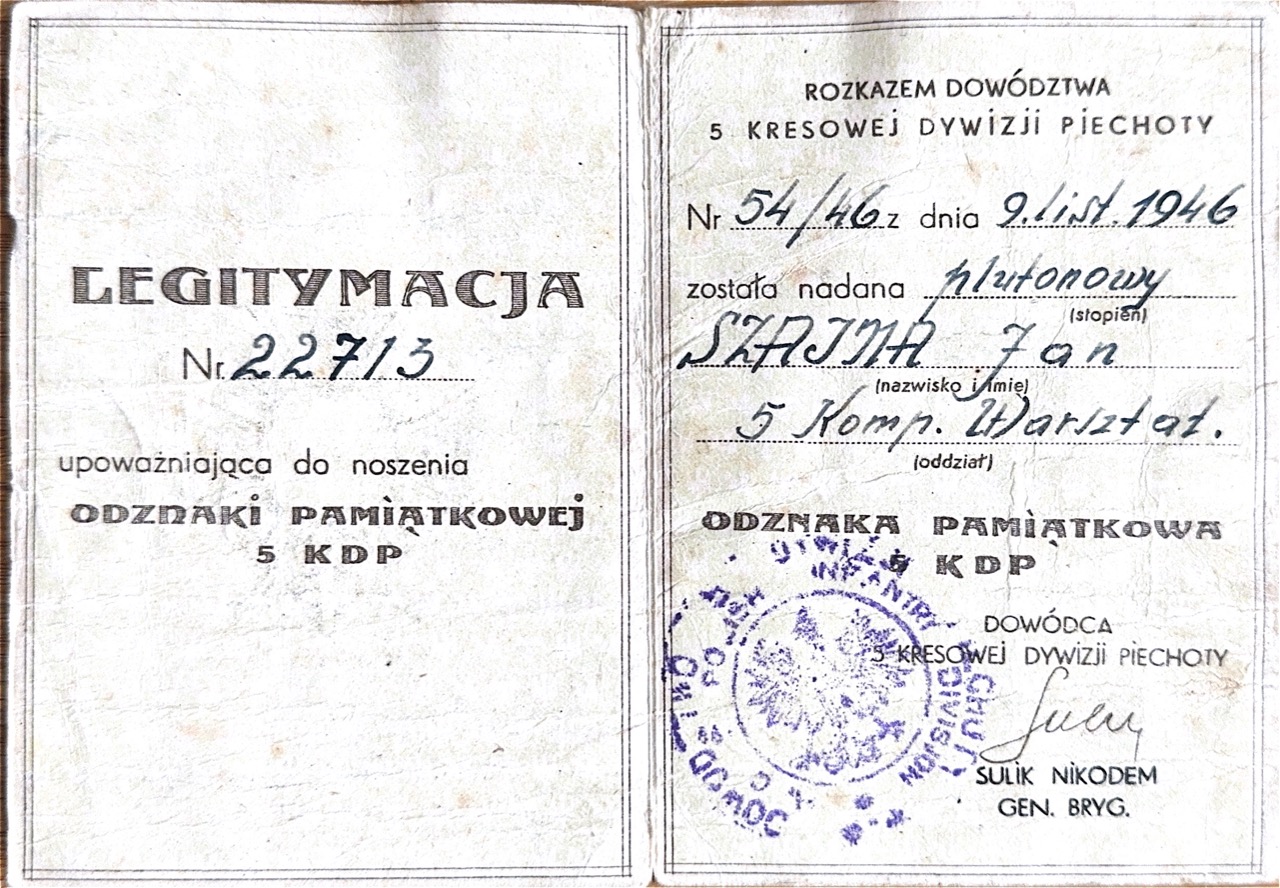 LEGITYMACJA
Nr. 22713
upoważniająca do noszenia
ODZNAKI PAMIĄTKOWEJ
5 KDP
ROZKAZEM DOWÓDZTWA
5 KRESOWEJ DYWIZJI PIECHOTY
Nr 54/46 z dnia 9.list.1946
została nadana plutonowy
(stopień)
SZAJNA Jan
(nazwisko i imię)
5 Komp. Warsztat.
(oddział)
ODZNAKA PAMIĄTKOWA
5 KDP
DOWÓDCA
5 KRESOWEJ DYWIZJI PIECHOTY
SULIK NIKODEM
GEN. BRYG.
INFANTRY DIVISION